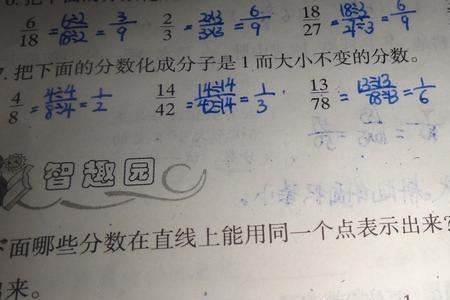 6/18 = 6÷2/18÷2 = 3/9 2/3 = 2×3/3×3 = 6/9 18/27 = 18÷3/27÷3 = 6/9
7. 把下面的分数化成分子是1而大小不变的分数。
4/8 = 4÷4/8÷4 = 1/2 14/42 = 14÷14/42÷14 = 1/3 13/78 = 13÷13/78÷13 = 1/6
智趣园
面哪些分数在直线上能用同一个点表示出来?
来。